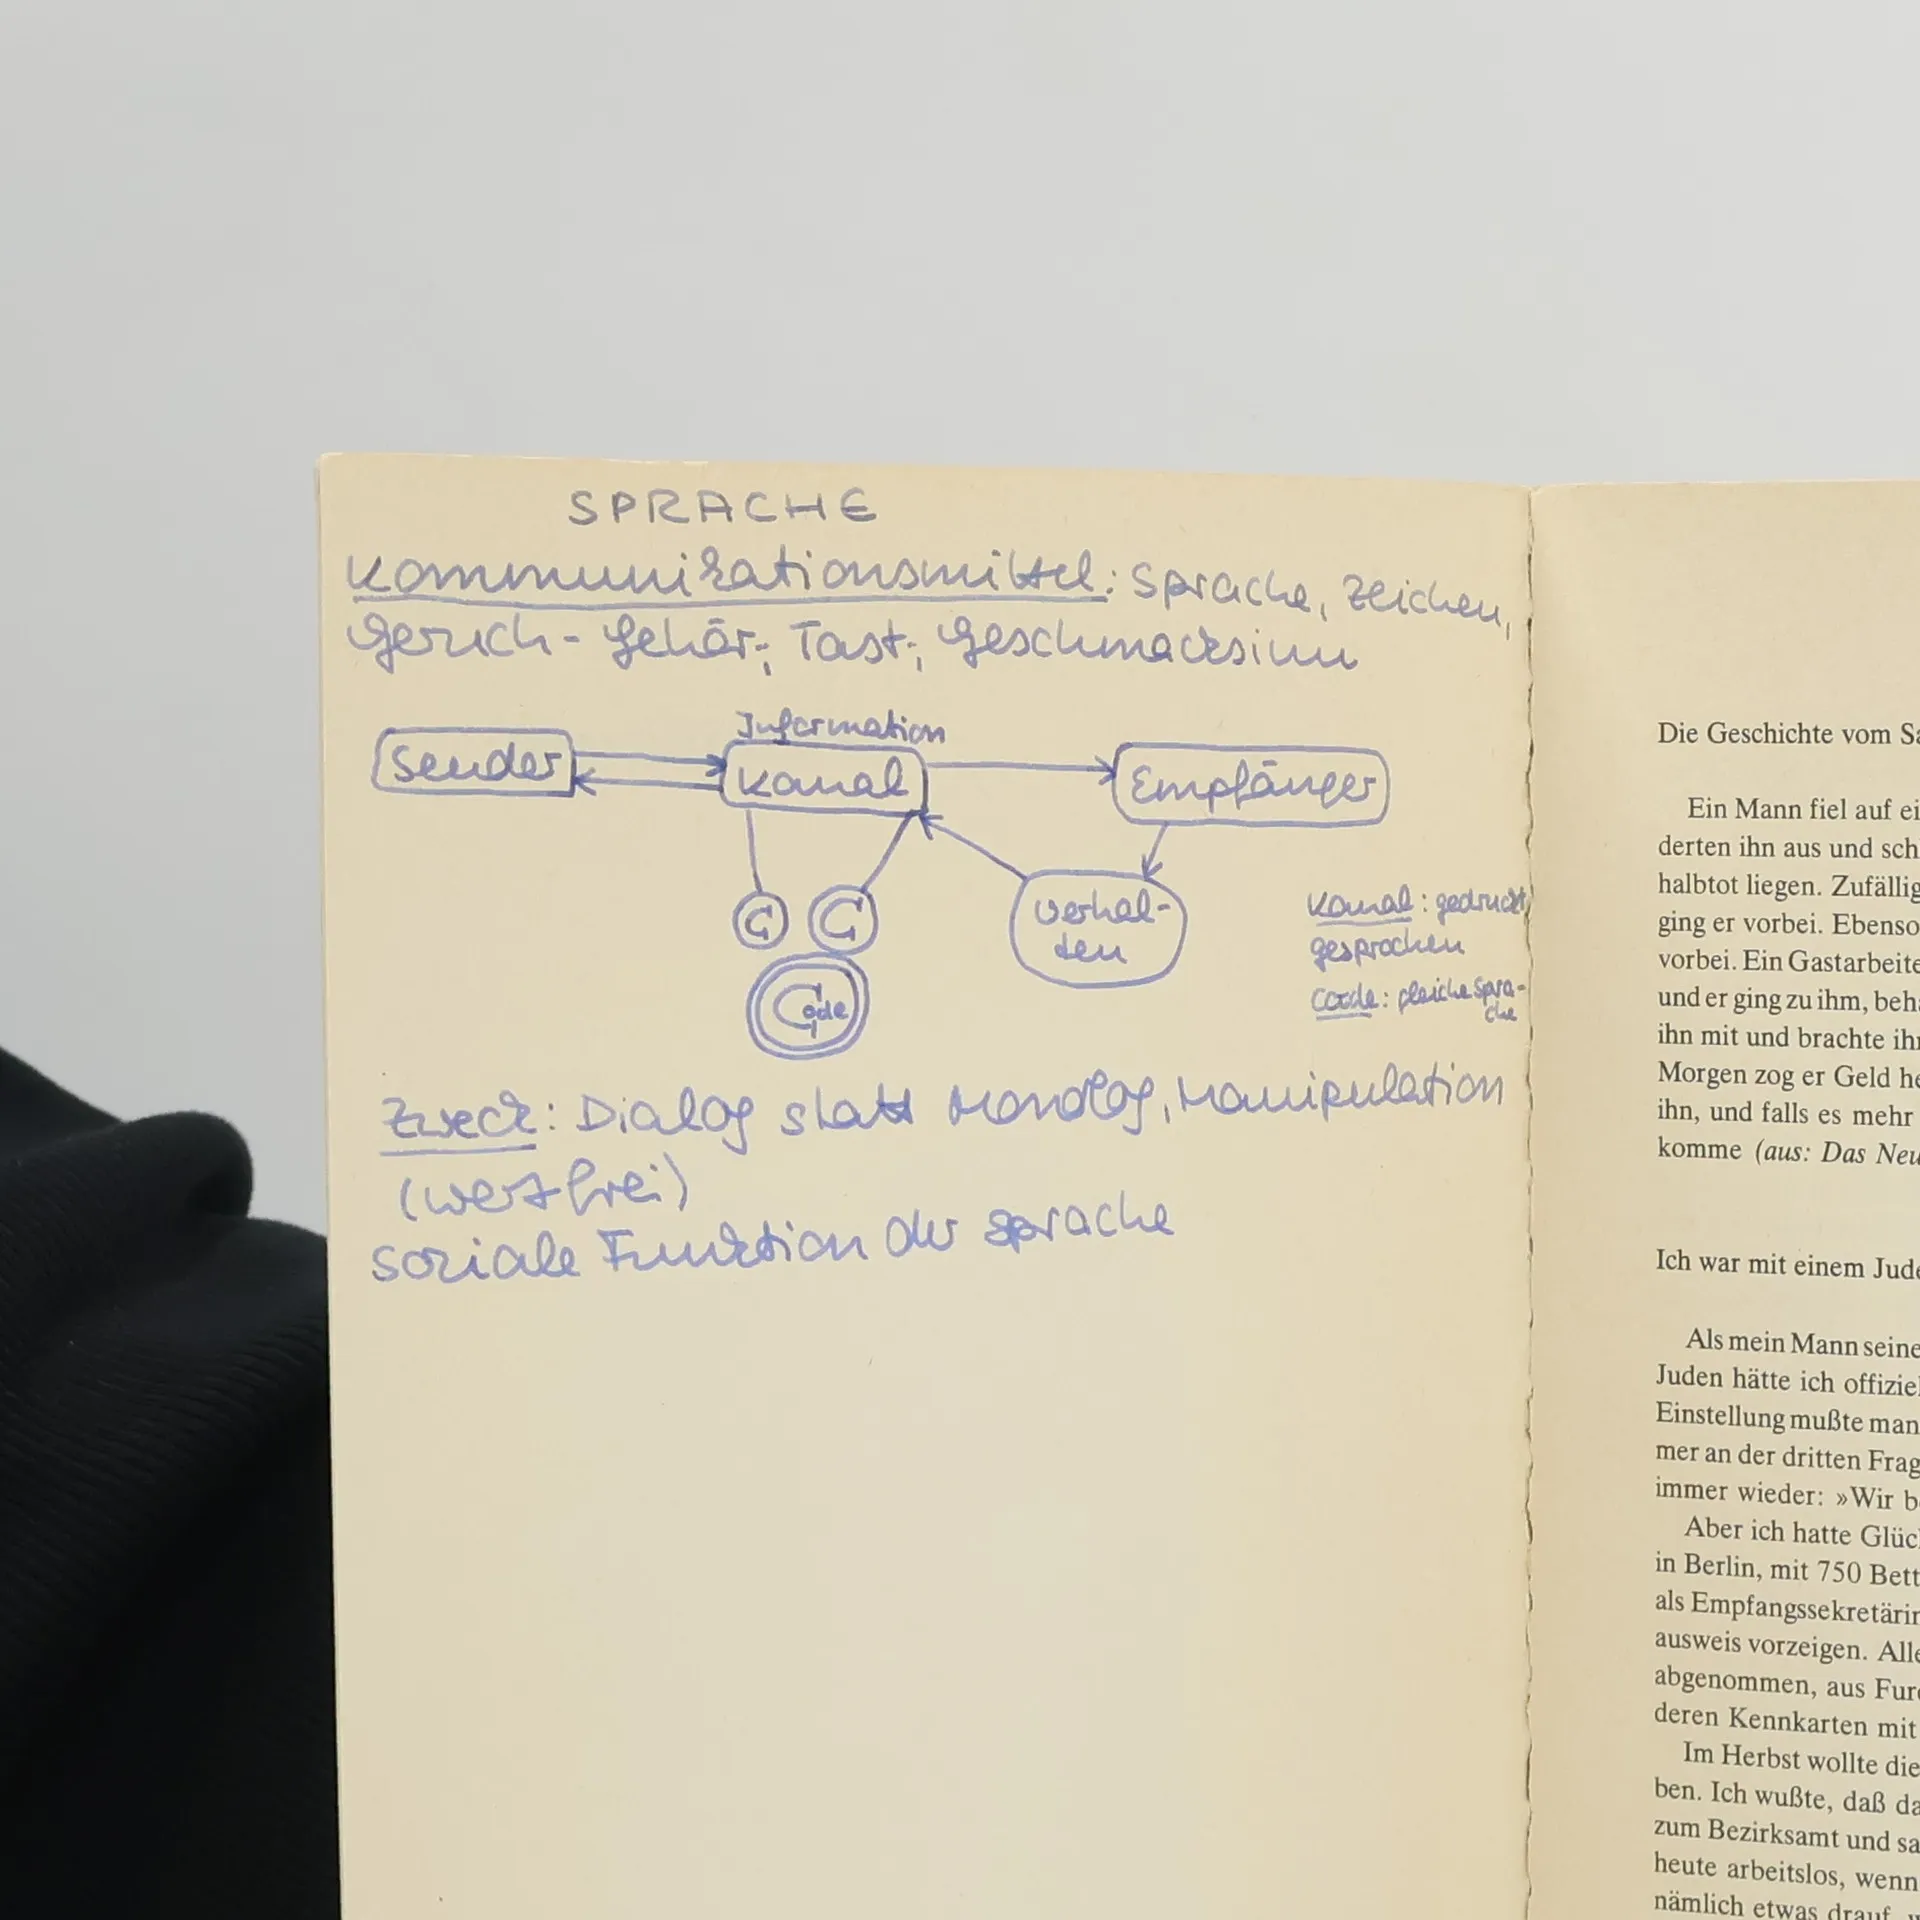 SPRACHE
Kommunikationsmittel: Sprache, Zeichen,
Geruch- Gehör-, Tast-, Geschmacksinn
Information
Sender
Kanal
Empfänger
C C
Code
Verhal-
ten
Kanal: gedruckt,
gesprochen
Code: gleiche Spra-
che
Zweck: Dialog statt Monolog, Manipulation
(wertfrei)
soziale Funktion der Sprache
Die Geschichte vom Sa
Ein Mann fiel auf ei
derten ihn aus und sch
halbtot liegen. Zufällig
ging er vorbei. Ebenso
vorbei. Ein Gastarbeite
und er ging zu ihm, beha
ihn mit und brachte ihn
Morgen zog er Geld he
ihn, und falls es mehr
komme (aus: Das Neu
Ich war mit einem Jude
Als mein Mann seine
Juden hätte ich offiziel
Einstellung mußte man
mer an der dritten Frag
immer wieder: »Wir b
Aber ich hatte Glüc
in Berlin, mit 750 Bett
als Empfangssekretärin
ausweis vorzeigen. Alle
abgenommen, aus Furc
deren Kennkarten mit
Im Herbst wollte die
ben. Ich wußte, daß da
zum Bezirksamt und sa
heute arbeitslos, wenn
nämlich etwas drauf